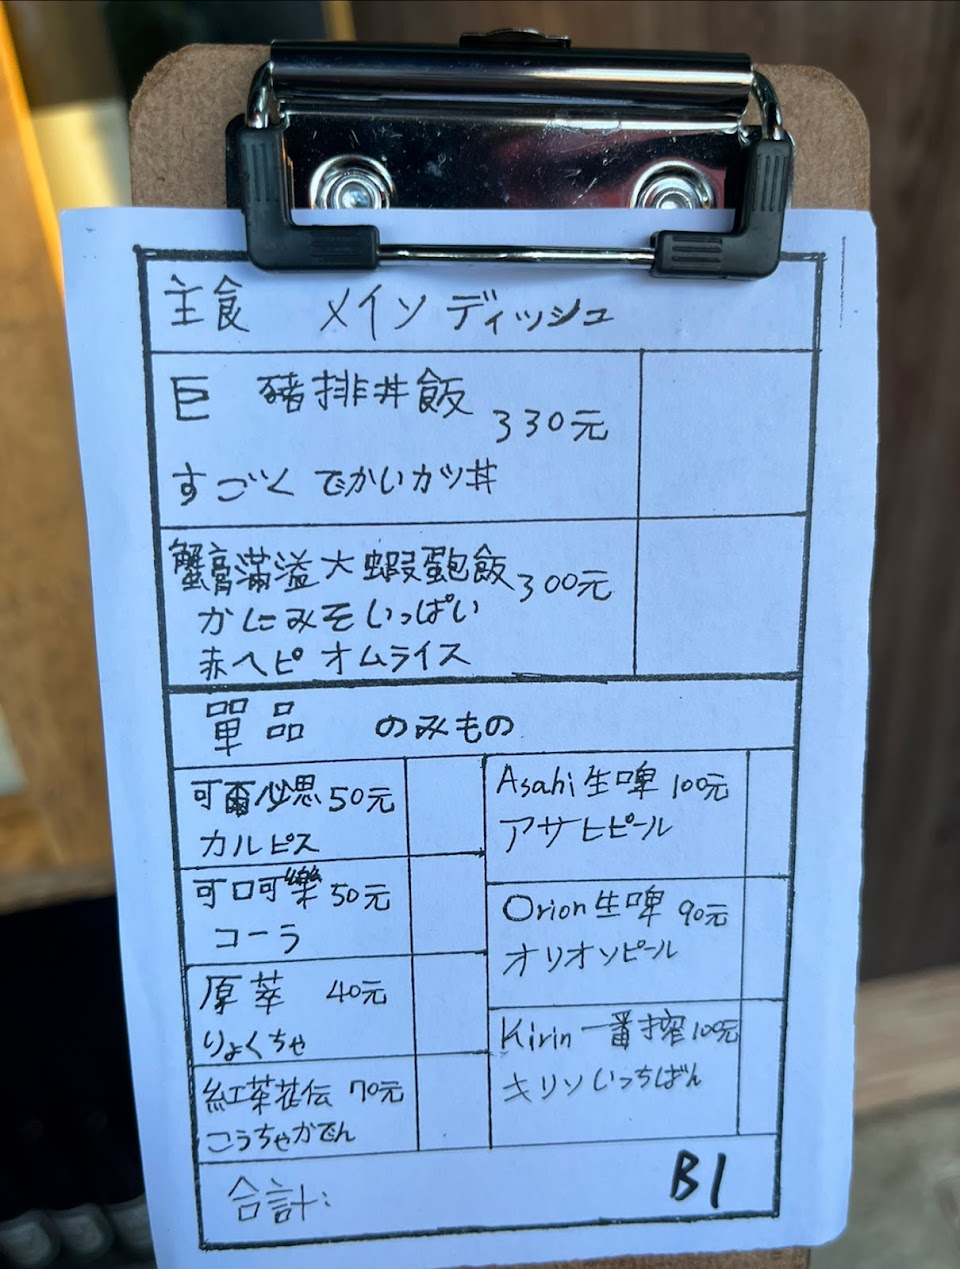 主食 メイン ディッシュ
巨 豬排丼飯 330元
すごく でかいカツ丼
蟹膏滿溢大蝦蛋包飯 300元
かにみそいっぱい
赤ヘビ オムライス
單品 のみもの
可爾必思 50元
カルピス
可口可樂 50元
コーラ
原萃 40元
りょくちゃ
紅茶花伝 70元
こうちゃかでん
Asahi生啤 100元
アサヒビール
Orion生啤 90元
オリオンビール
Kirin一番搾 100元
キリンいっちばん
合計:
B1